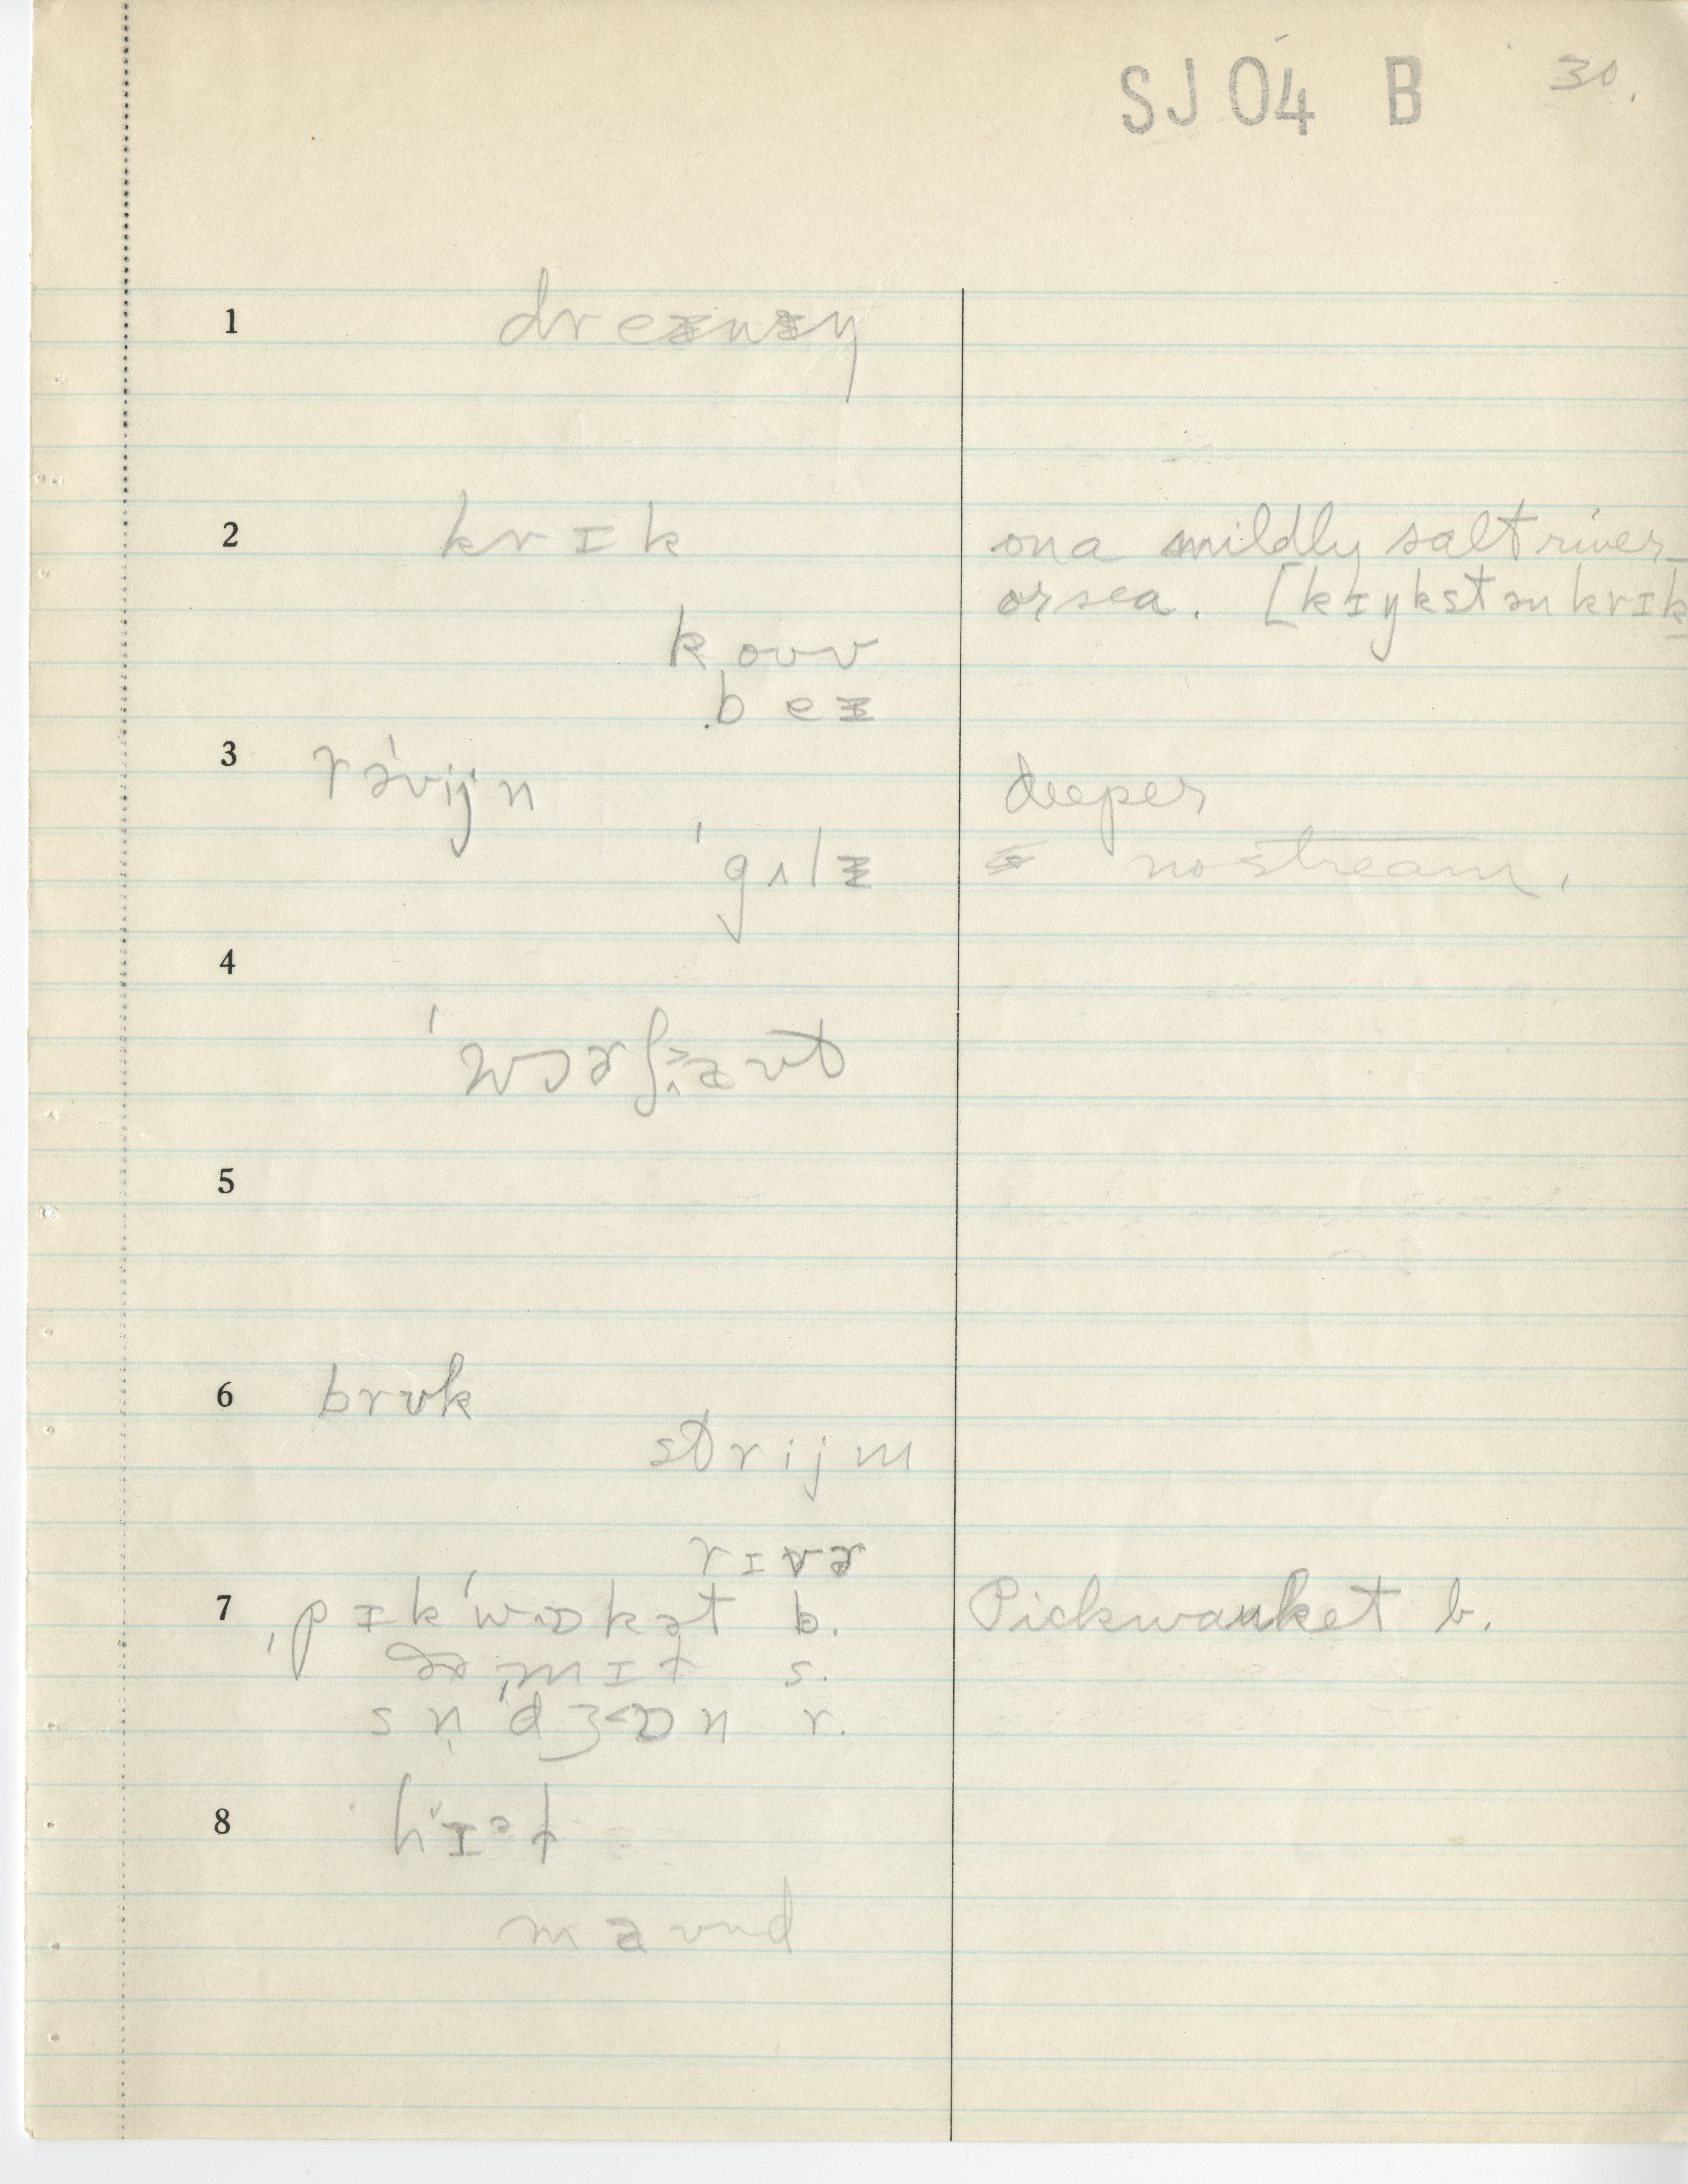 SJ04 B 30.
1 dreɪnɪŋ
2 krɪk
on a mildly salt river
or sea. [kɪŋkstən krɪk
koʊv
beɪ
3 rə'vijn
deeper
'gʌlɪ
no stream.
4
5
6 brʊk
strijm
rɪvɚ
7 ˌpɪk'wɒkət b.
Pickwanket b.
s.
sn̩'dʒɒn r.
8
maʊnd